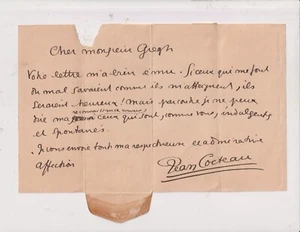 Cher monsieur Gregh
Votre lettre m'a bien ému. Si ceux qui me font
du mal savaient comme ils m'atteignent, ils
seraient heureux! mais par contre je ne peux
dire ma reconnaissance à ceux qui sont, comme vous, indulgents
et spontanés.
Je vous envoie tout ma respectueuse et admirative
affection
Jean Cocteau